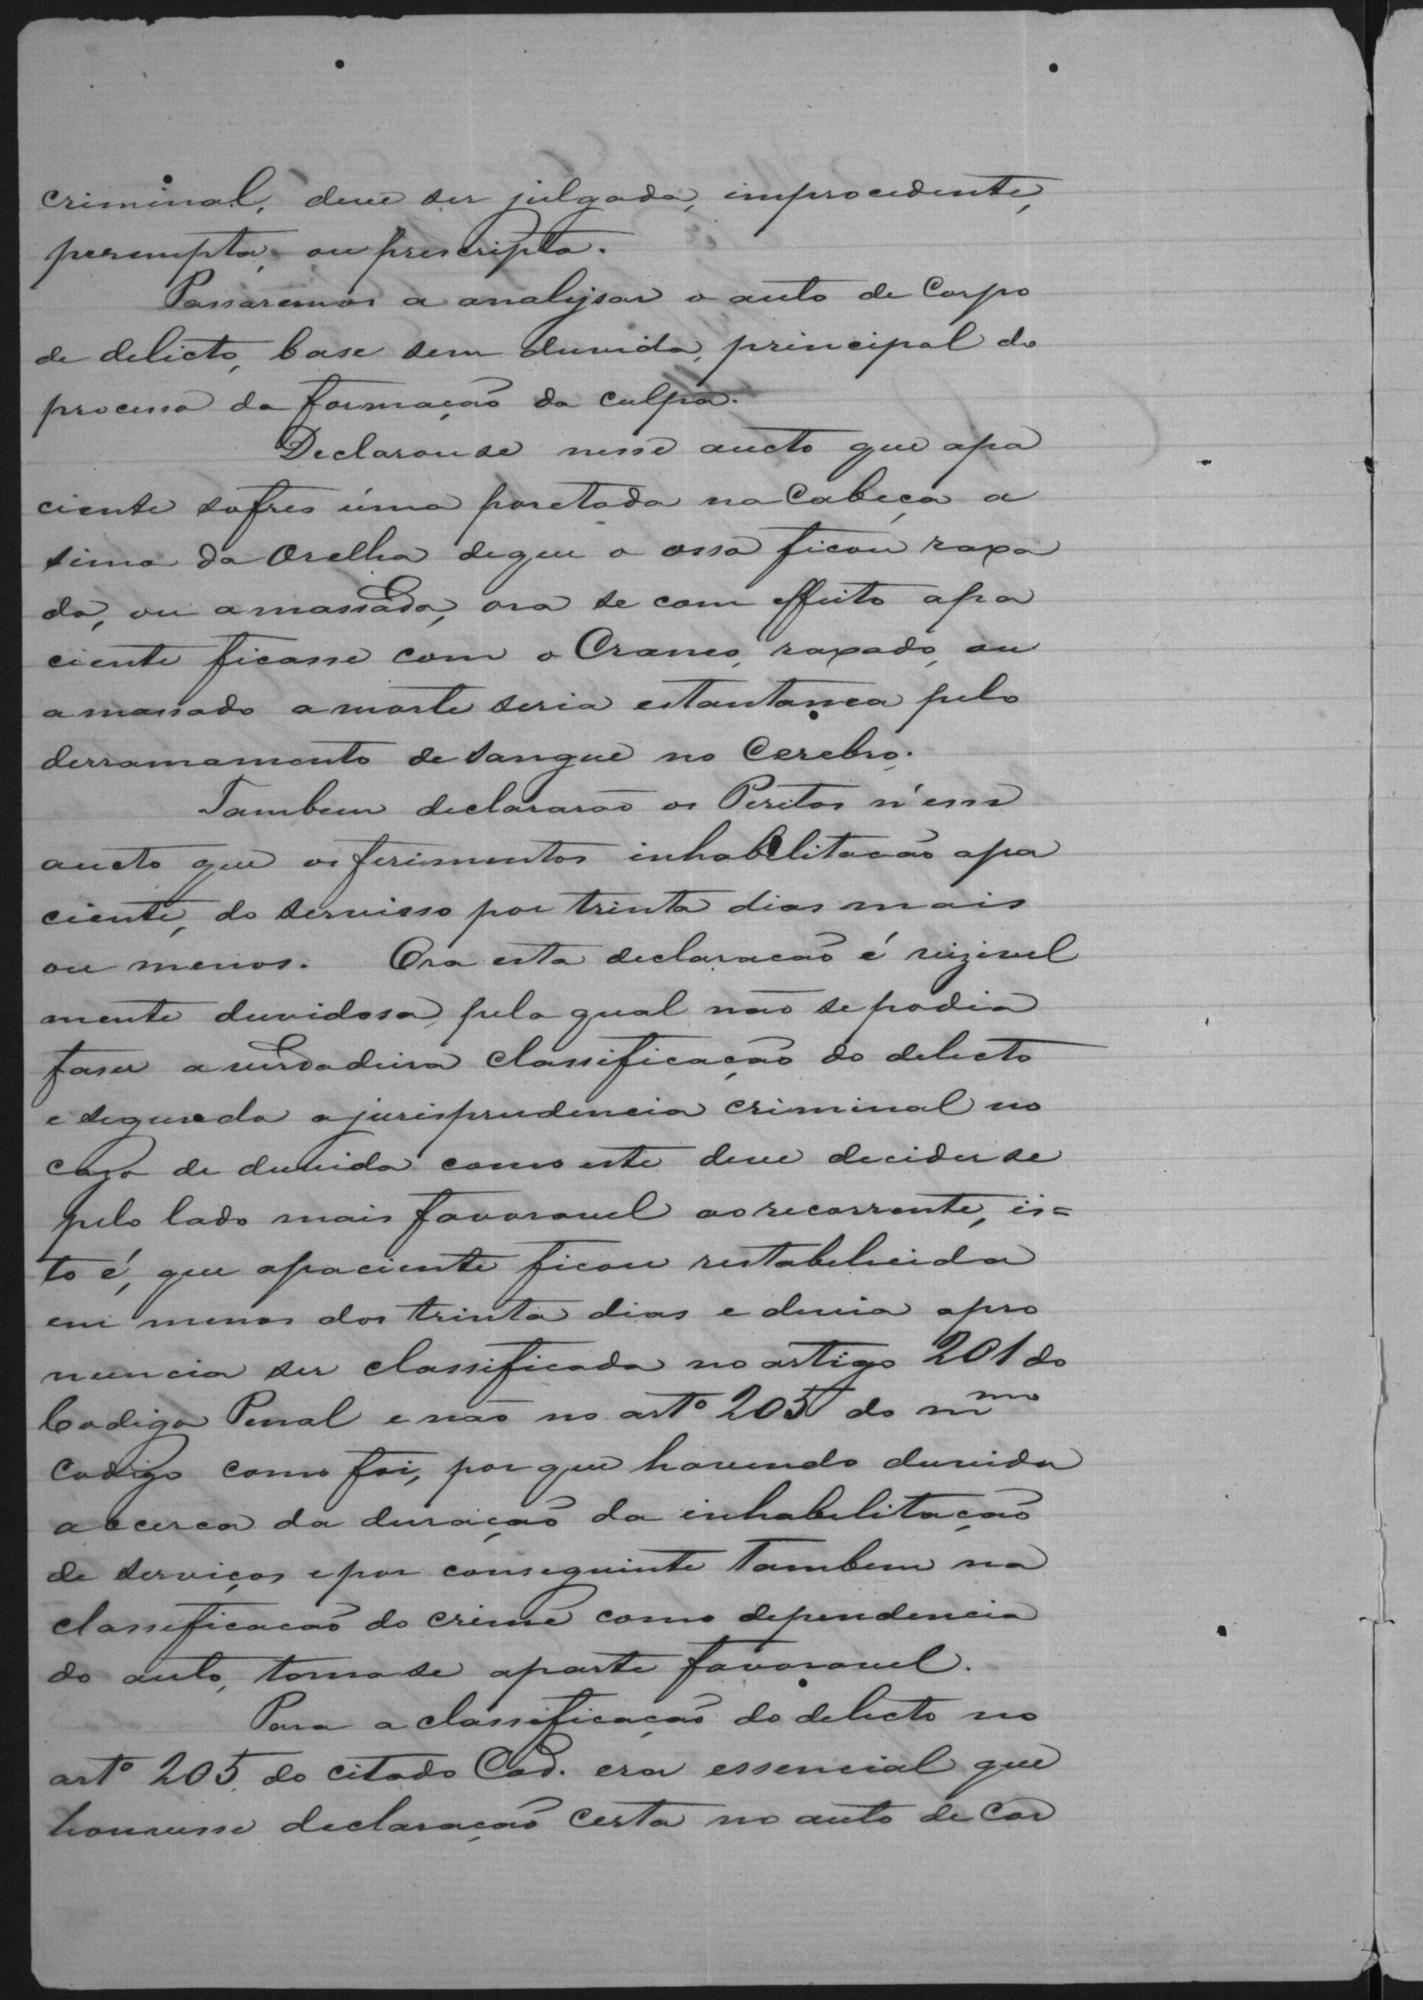 criminal, deve ser julgada, improcedente,
perempta, ou prescripta.
Passaremos a analysar o auto de Corpo
de delicto, base sem duvida, principal do
processo da formação da culpa.
Declarou se nesse aucto que apa
ciente sofreo úma poretada na Cabeça a
sima da Orelha degue o osso ficou raxa
do, ou amassado, ora se com effeito apa
ciente ficasse com o Craneo, raxado, ou
amassado a morte seria estantanea pelo
derramamento de sangue no Cerebro.
Tambem declararão os Peritos n'esse
aucto que os ferimentos inhabelitacão apa
ciente, do servisso por trinta dias mais
ou menos. Ora esta declaracão é vizivel
mente duvidosa, pela qual não se podia
faser a verdadeira classificação do delecto
e segundo a jurisprudencia criminal no
cazo de duvida como este deve decider se
pelo lado mais favoravel ao recorrente, is=
to é, que apaciente ficou restabelecida
em menos dos trinta dias e devia apro
nuncia ser classificada no artigo 201 do
Codigo Penal e não no artº 205 do mmo
Codigo como foi, por que havendo duvida
accerca da duração da inhabelitação
de serviços e por conseguinte Tambem na
classificacão do crime como dependencia
do auto, toma se aparte favoravel.
Para a classificação do delecto no
artº 205 do citado Cod. era essencial que
houvesse declaração Certa no auto de Cor